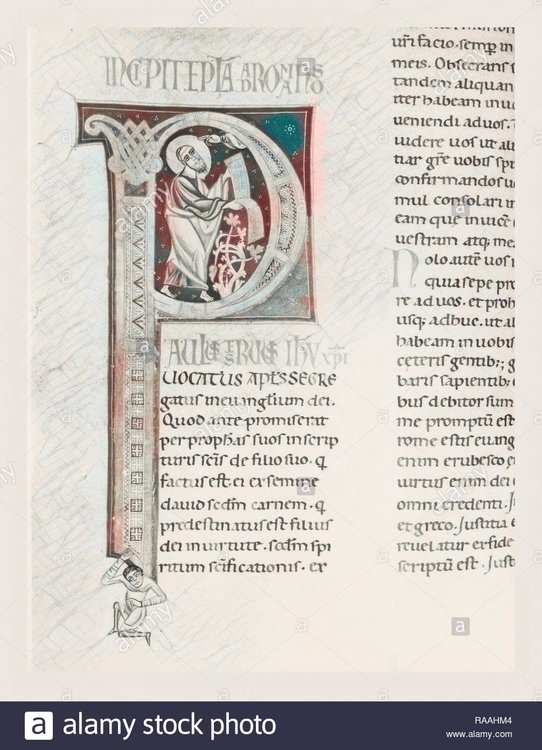 INCIPIT EPLA AD ROMANOS
PAULUS SERUUS IHU XPI
UOCATUS APLS SEGRE
gatus in euanglium dei.
Quod ante promiserat
per prophas suos in scrip
turis scis de filio suo. q
factus est ei ex semine
dauid scdm carnem. q
predestinatus est filius
dei in uirtute. scdm spi
ritum scificationis. ex
uri facio. semp in
meis. Obsecrans
tandem aliquan
iter habeam in uo
ueniendi ad uos.
uidere uos ut ali
tiar gre uobis spi
confirmandos u
mul consolari in
eam que inuice
uestram atq; me
Nolo autē uos i
quia sepe pr
re ad uos. et proh
usq; adhuc. ut al
habeam in uobis
ceteris gentib;; g
baris sapientib;
bus debitor sum
me promptū est
rome estis euang
enim erubesco
uirtus enim dei
omni credenti. J
et greco. Justitia
reuelatur ex fide
scriptū est. Just
alamy
alamy stock photo
RAAHM4
www.alamy.com